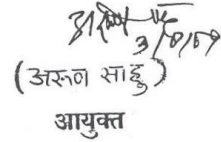 3/9/09
(अरूण साहु)
आयुक्त